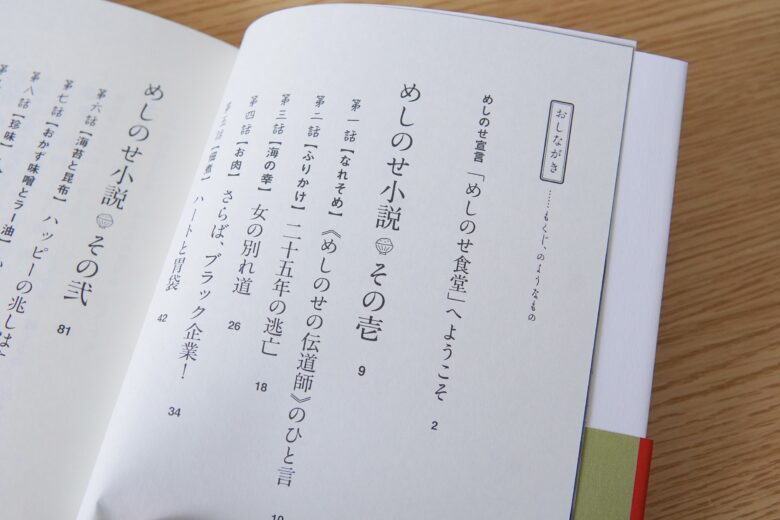 おしながき
……もくじ、のようなもの
めしのせ宣言 「めしのせ食堂」へようこそ 2
めしのせ小説 その壱 9
第一話【なれそめ】《めしのせの伝道師》のひと言
第二話【ふりかけ】二十五年の逃亡 18
第三話【海の幸】女の別れ道 26
第四話【お肉】さらば、ブラック企業! 34
第五話【佃煮】ハートと胃袋 42
めしのせ小説 その弐 81
第六話【海苔と昆布】ハッピーの兆しは
第七話【おかず味噌とラー油】
第八話【珍味】